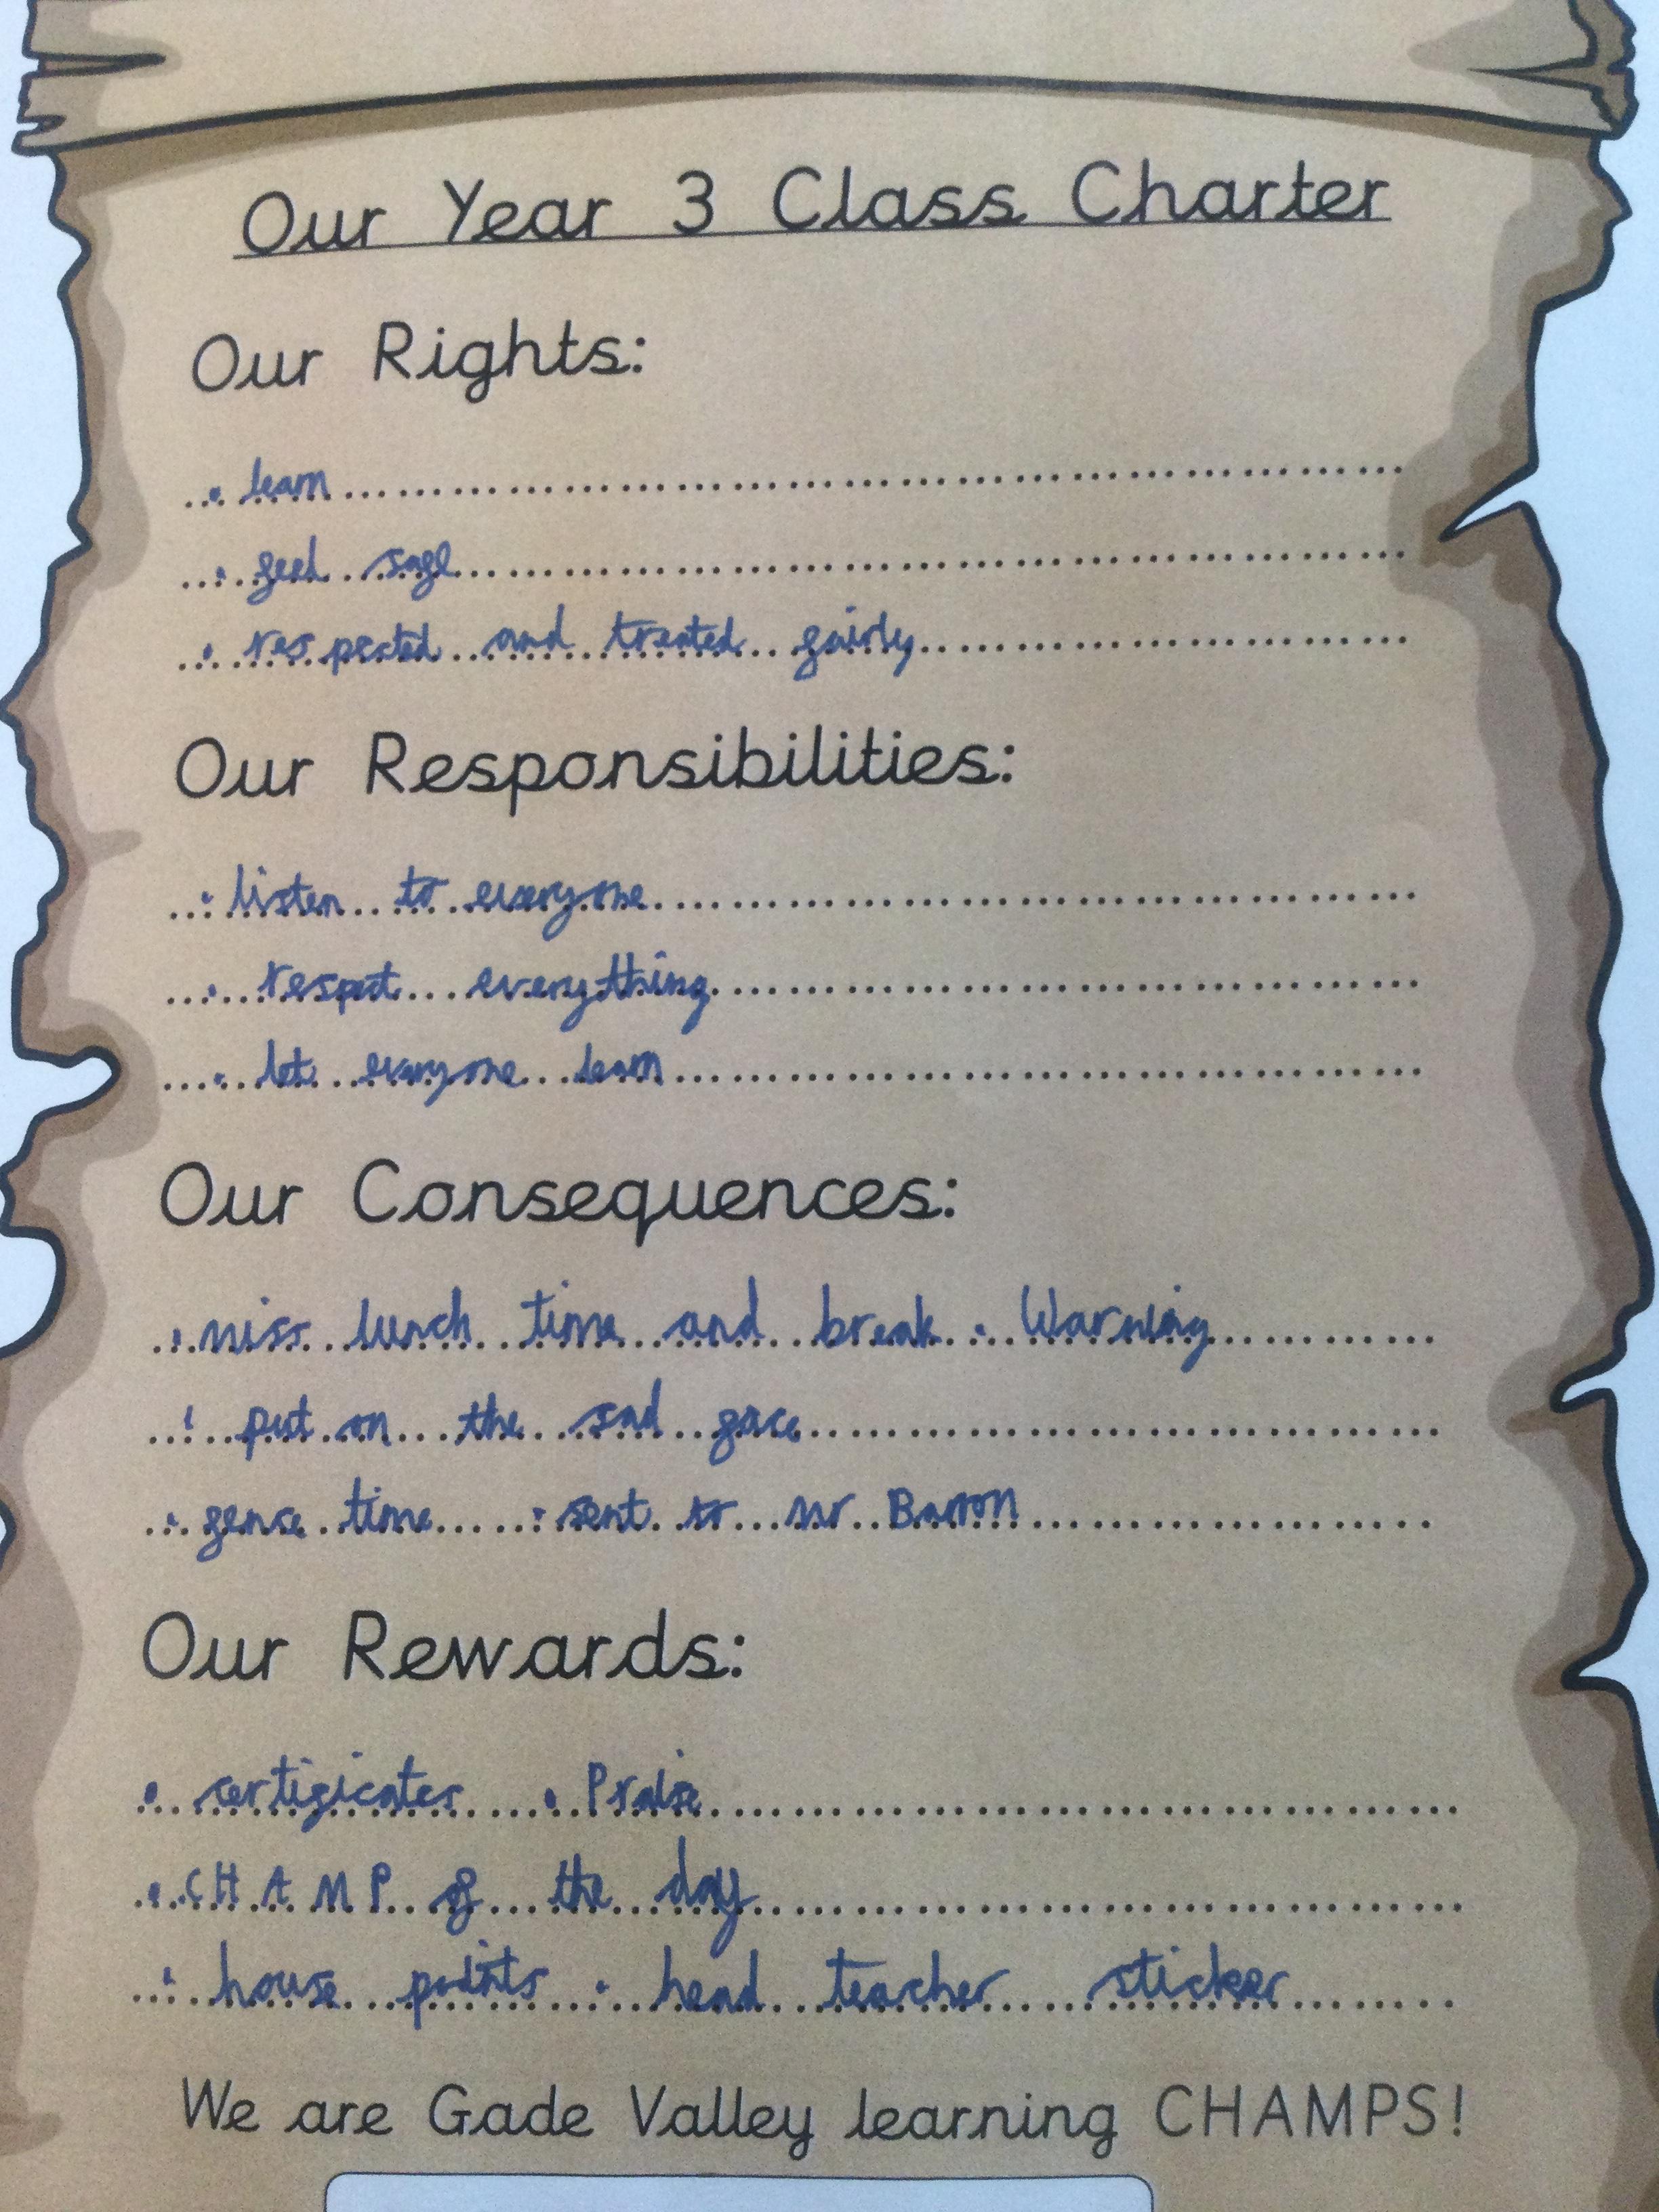 Our Year 3 Class Charter
Our Rights:
• learn
• feel safe
• respected and treated fairly
Our Responsibilities:
• listen to everyone
• respect everything
• let everyone learn
Our Consequences:
• miss lunch time and break • Warning
• put on the sad face
• fence time • sent to Mr Barron
Our Rewards:
• certificates • Praise
• CHAMP of the day
• house points • head teacher sticker
We are Gade Valley learning CHAMPS!